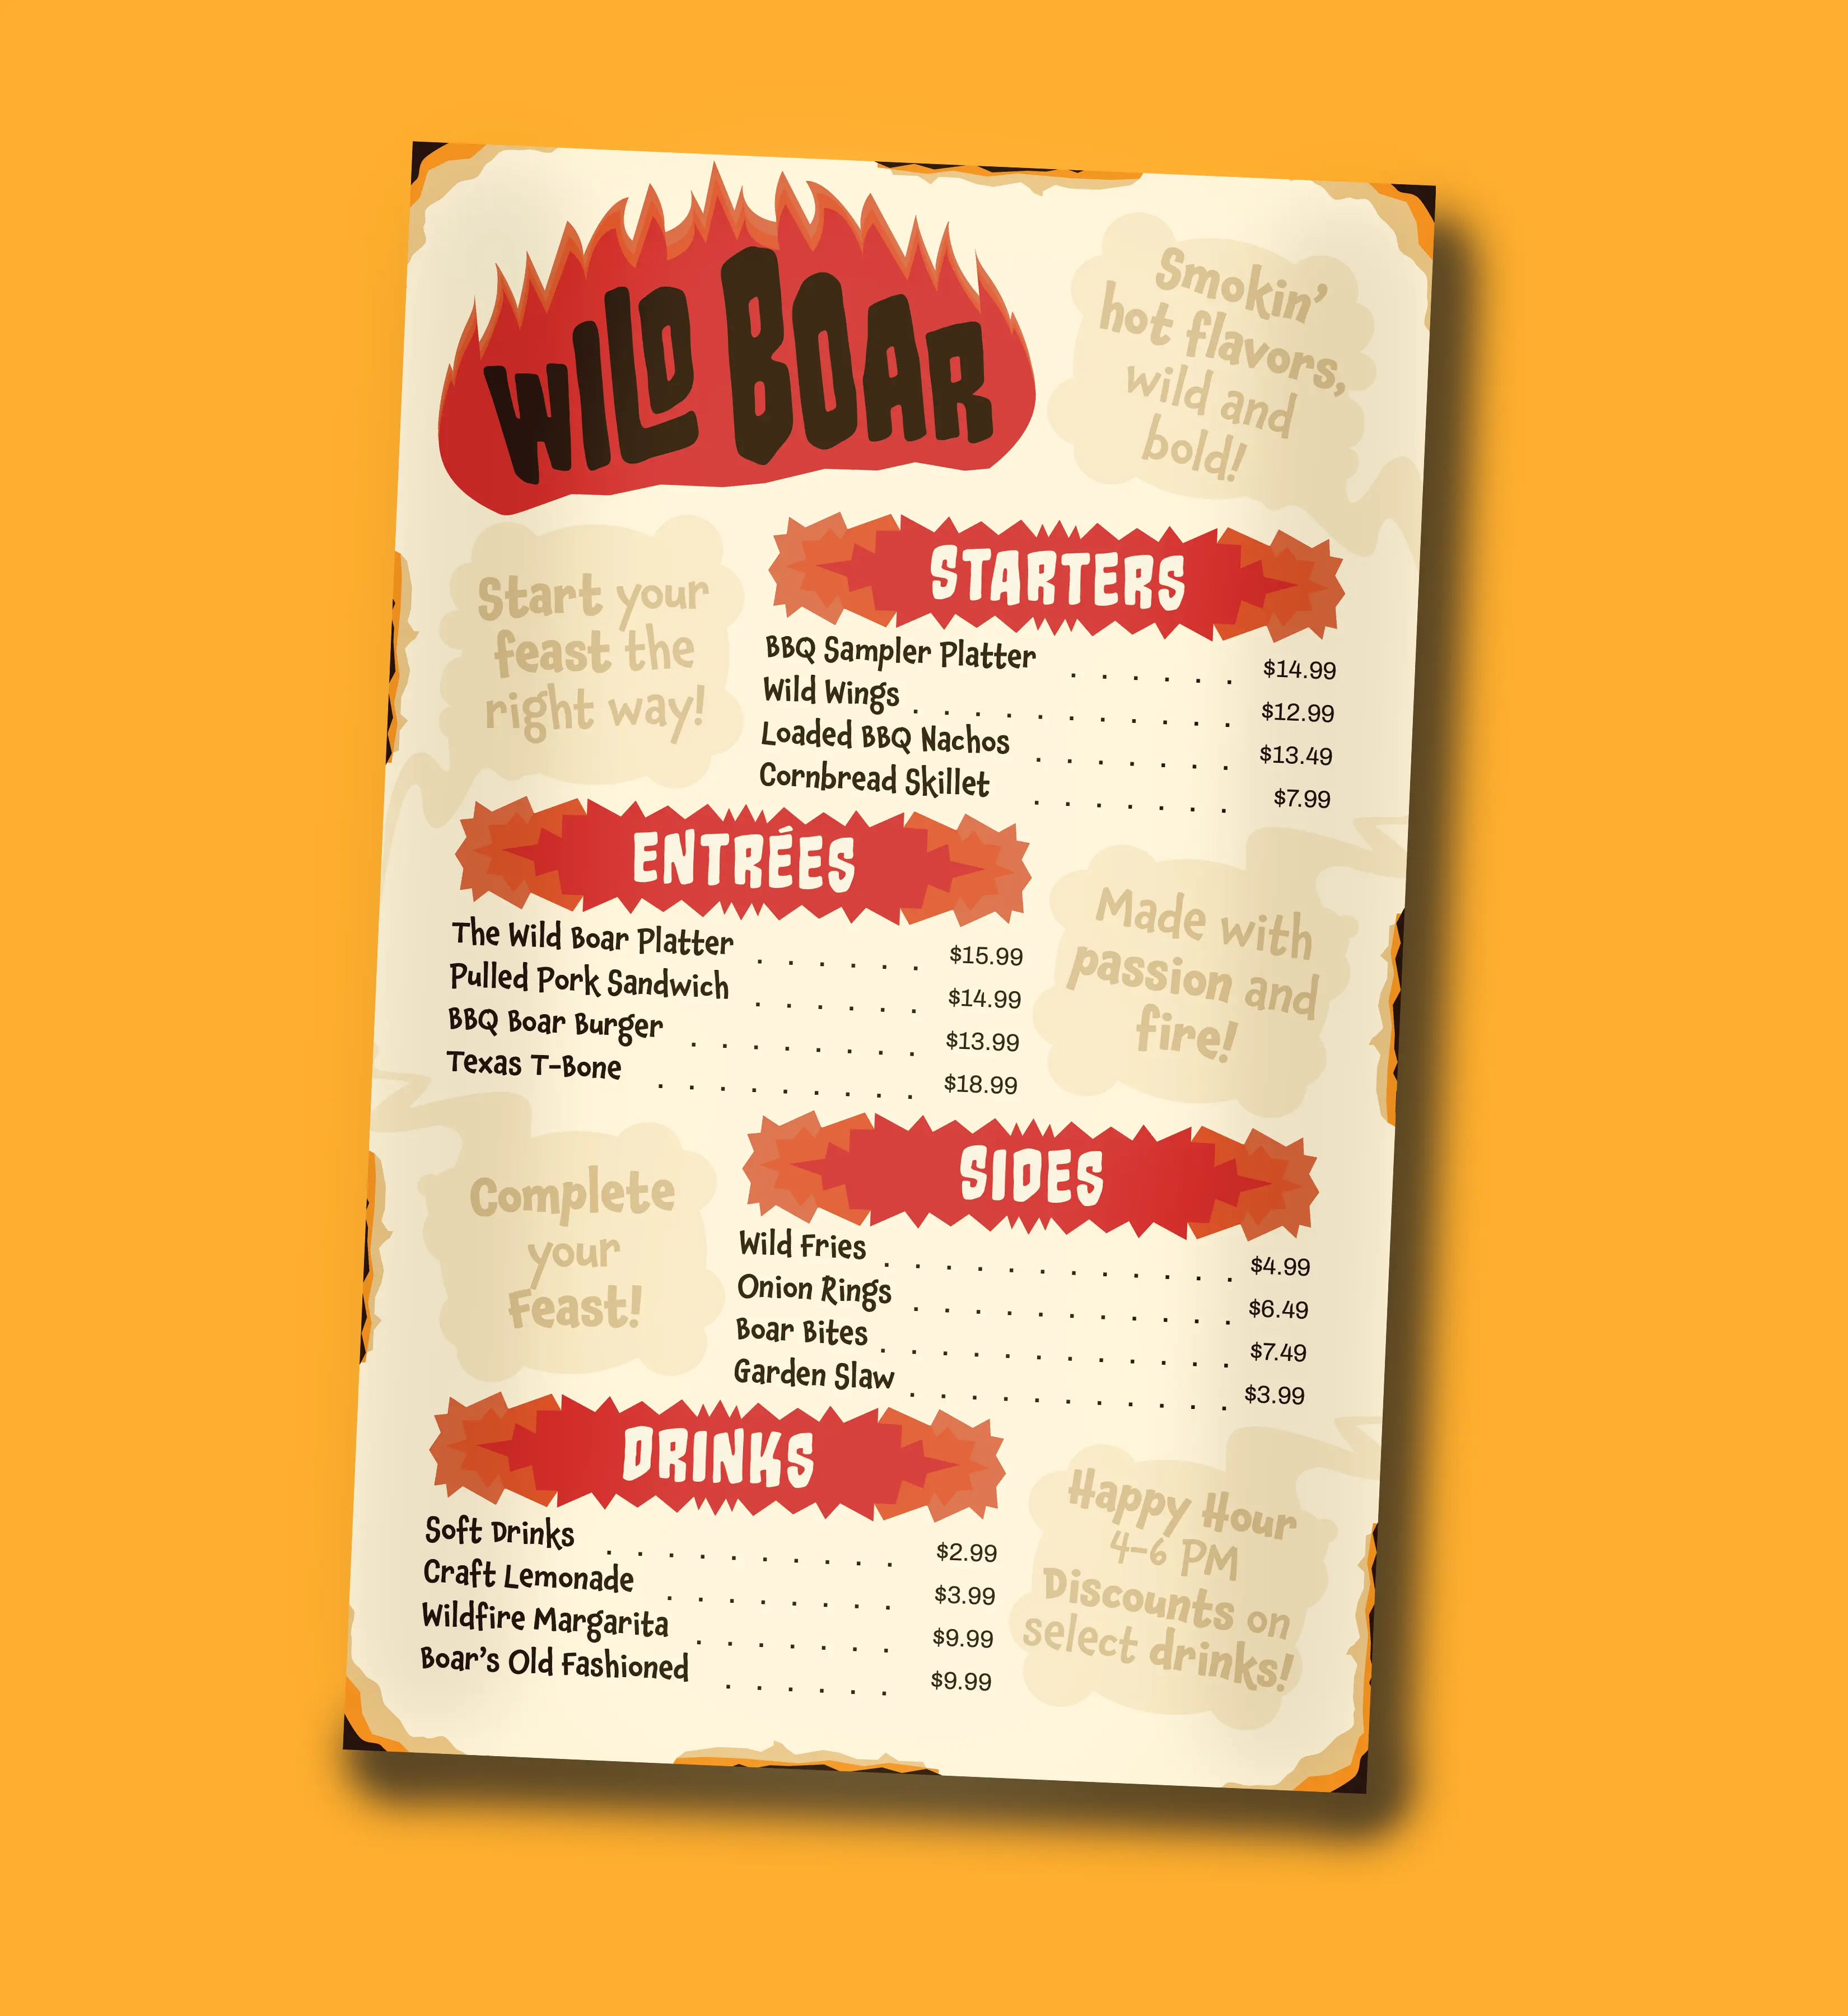 WILD BOAR
Smokin'
hot flavors,
wild and
bold!
Start your
feast the
right way!
STARTERS
BBQ Sampler Platter . . . . . . $14.99
Wild Wings . . . . . . . . . . . $12.99
Loaded BBQ Nachos . . . . . . . $13.49
Cornbread Skillet . . . . . . . $7.99
ENTRÉES
The Wild Boar Platter . . . . . . $15.99
Pulled Pork Sandwich . . . . . . $14.99
BBQ Boar Burger . . . . . . . . $13.99
Texas T-Bone . . . . . . . . . $18.99
Made with
passion and
fire!
Complete
your
Feast!
SIDES
Wild Fries . . . . . . . . . . . . $4.99
Onion Rings . . . . . . . . . . . $6.49
Boar Bites . . . . . . . . . . . . $7.49
Garden Slaw . . . . . . . . . . . $3.99
DRINKS
Soft Drinks . . . . . . . . . . $2.99
Craft Lemonade . . . . . . . . $3.99
Wildfire Margarita . . . . . . . $9.99
Boar's Old Fashioned . . . . . . $9.99
Happy Hour
4-6 PM
Discounts on
select drinks!